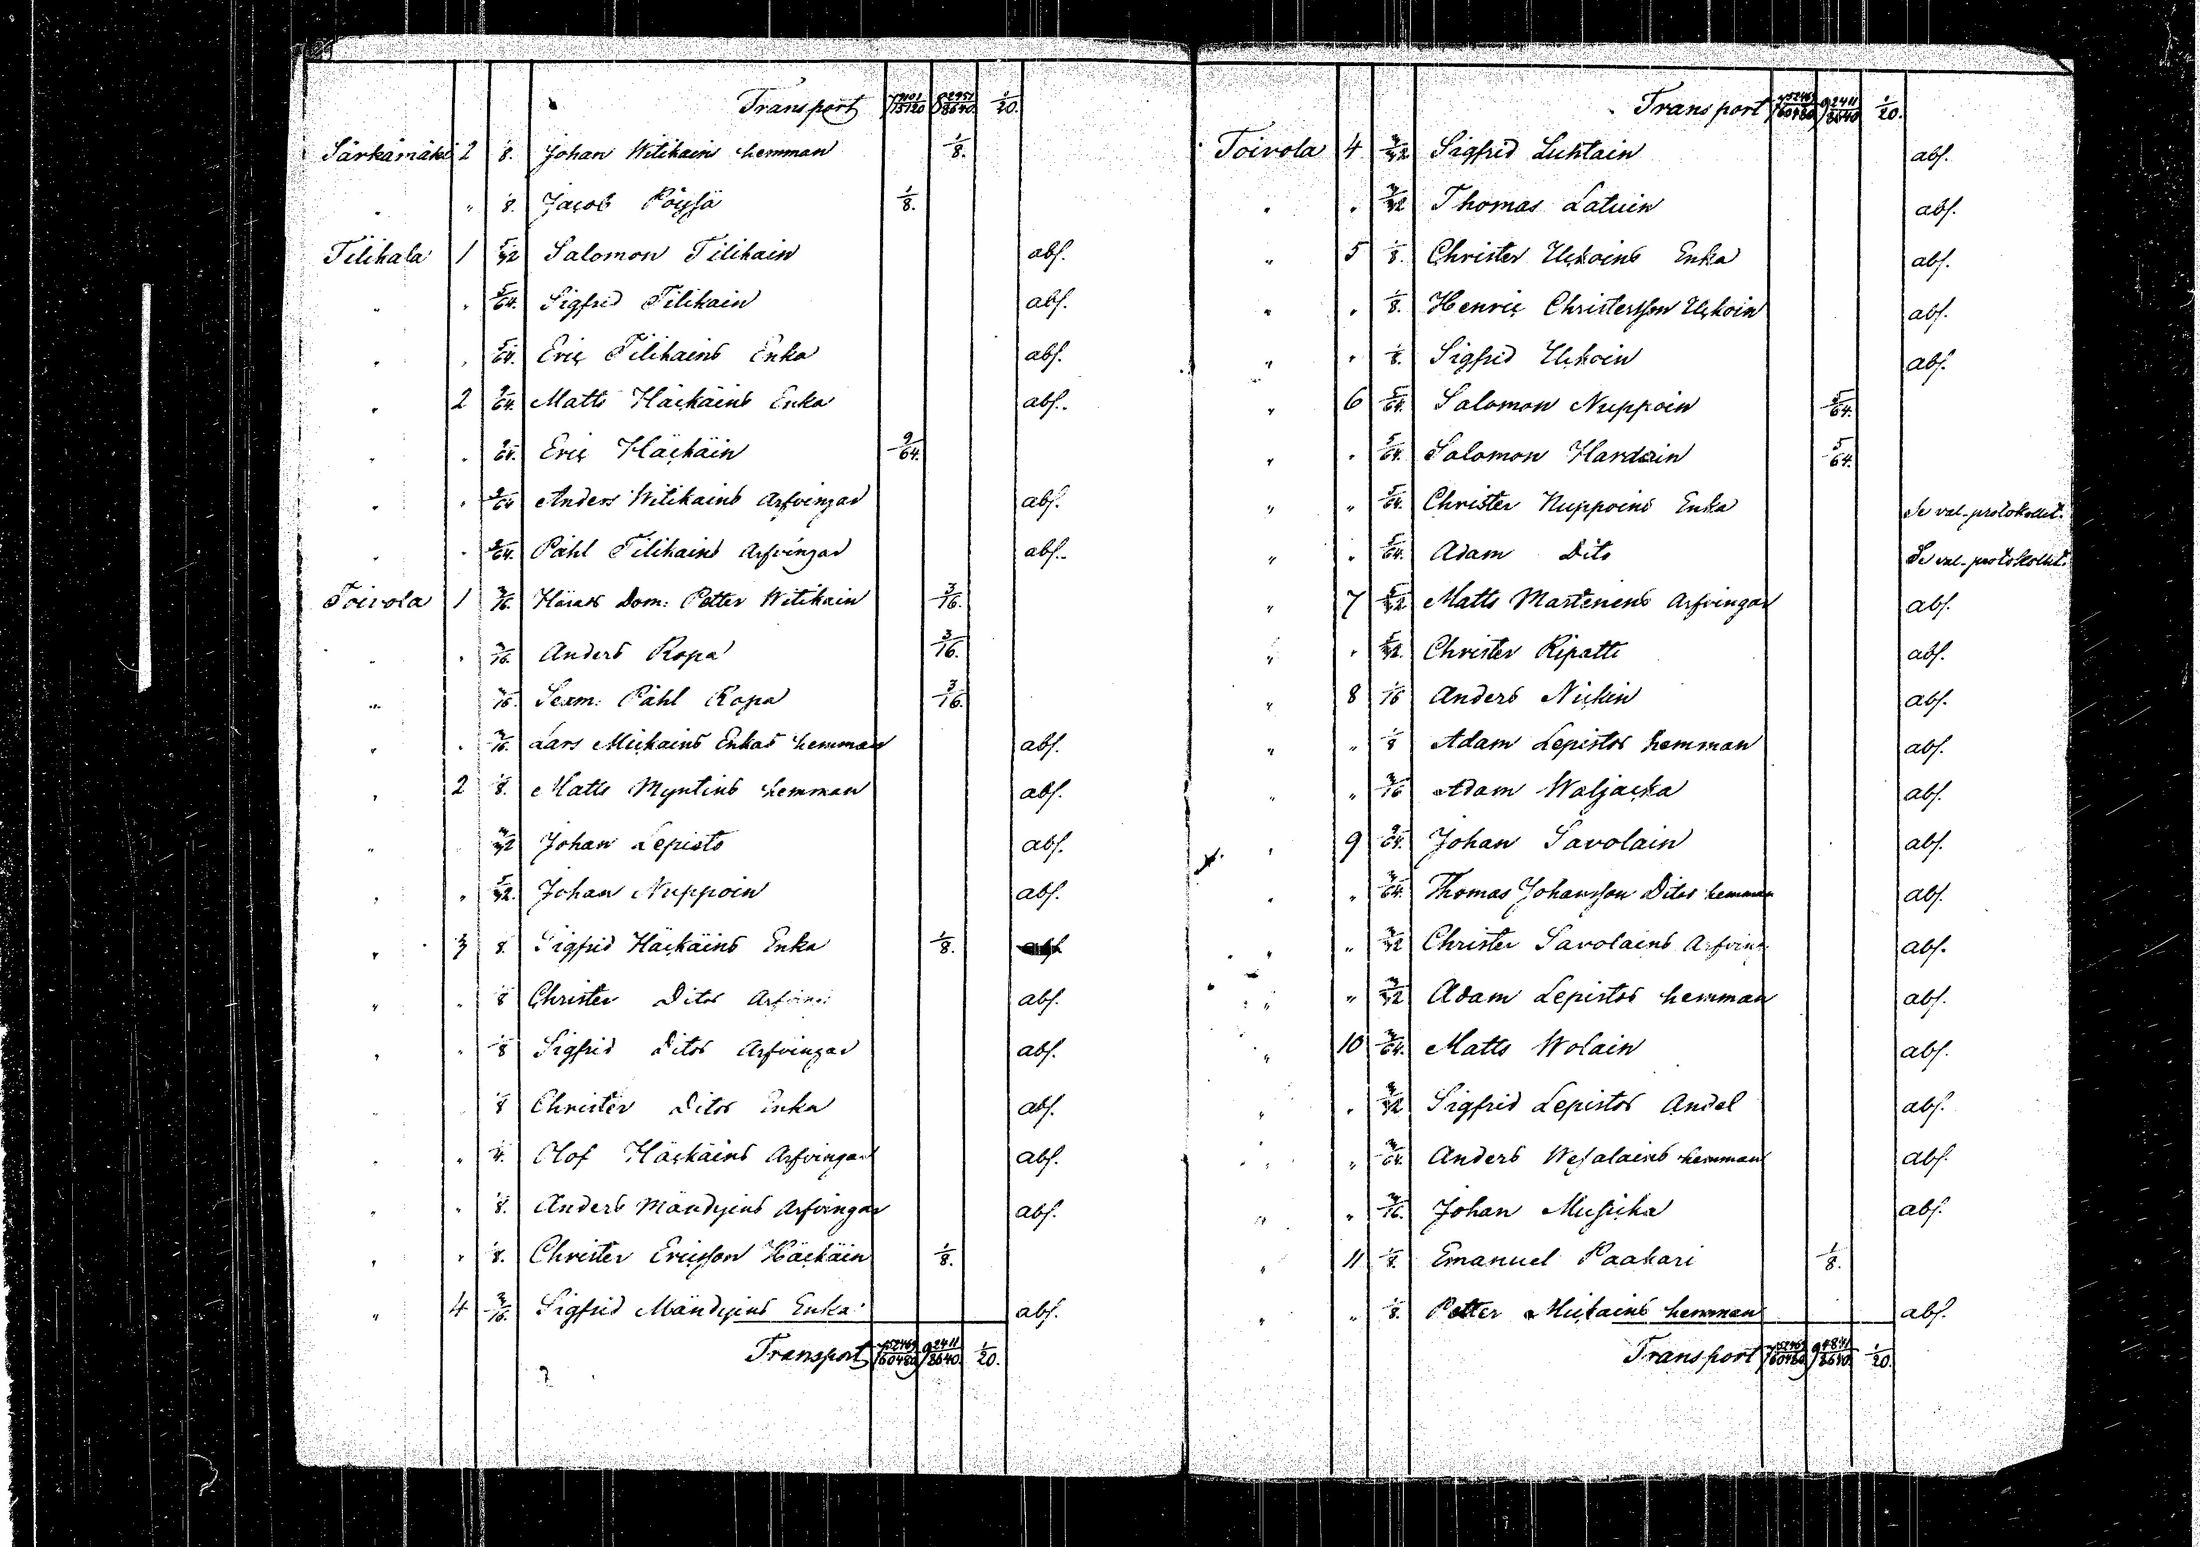 Transport 1/20.
Särkämäki 2 1/8. Johan Witikains hemman 1/8.
" " 1/8. Jacob Pöysä 1/8.
Tilikala 1 5/32 Salomon Tilikain abs.
" " 5/64. Sigfrid Tilikain abs.
" " 5/64. Eric Tilikains Enka abs.
" 2 9/64. Matts Häckäins Enka abs.
" " 9/64. Eric Häckäin 9/64.
" " 9/64 Anders Witikains Arfvingar abs.
" " 9/64. Påhl Tilikains Arfvingar abs.
Toivola 1 3/16. Härads Dom: Petter Witikain 3/16.
" " 3/16. Anders Ropa 3/16.
" 3/16. Sexm: Påhl Ropa 3/16.
" " 3/16. Lars Mickains Enkas hemman abs.
" 2 1/8. Matts Myntins hemman abs.
" 3/32 Johan Lepistö abs.
" " 5/32. Johan Nuppoin abs.
" 3 1/8. Sigfrid Häckäins Enka 1/8.
" " 1/8 Christer Ditos Arfving: abs.
" " 1/8 Sigfrid Ditos Arfvingar abs.
1/8 Christer Ditos Enka abs.
" " 1/4. Olof Häckäins Arfvingar abs.
" " 1/8. Anders Mändyins Arfvingar abs.
" " 1/8. Christer Ericsson Häckäin 1/8.
" 4 3/16. Sigfrid Mändyins Enka abs.
Transport 1/20.
Transport 1/20.
Toivola 4 3/32 Sigfrid Luhtain abs.
" " 3/32 Thomas Latuin abs.
" 5 1/8. Christer Uckoins Enka abs.
" " 1/8. Henric Christersson Uckoin abs.
" " 1/8. Sigfrid Uckoin abs.
" 6 5/64. Salomon Nuppoin 5/64.
" " 5/64. Salomon Hardain 5/64.
" " 5/64. Christer Nuppoins Enka Se val-protokollet.
" " 5/64. Adam Dito Se val-protokollet.
" 7 5/32 Matts Martinens Arfvingar abs.
" " 5/32. Christer Ripatti abs.
" 8 1/16 Anders Nickin abs.
" " 1/8 Adam Lepistös hemman abs.
" " 3/16 Adam Waljacka abs.
" 9 9/64. Johan Savolain abs.
" " 3/64. Thomas Johansson Ditos hemman abs.
" " 3/32 Christer Savolains Arfving abs.
" " 3/32 Adam Lepistös hemman abs.
" 10 3/64. Matts Wolain abs.
" " 3/32 Sigfrid Lepistös Andel abs.
" " 3/64. Anders Wesalains hemman abs.
" " 3/16. Johan Musicka abs.
" 11 1/8. Emanuel Paakari 1/8.
" " 1/8. Petter Mickains hemman abs.
Transport 1/20.